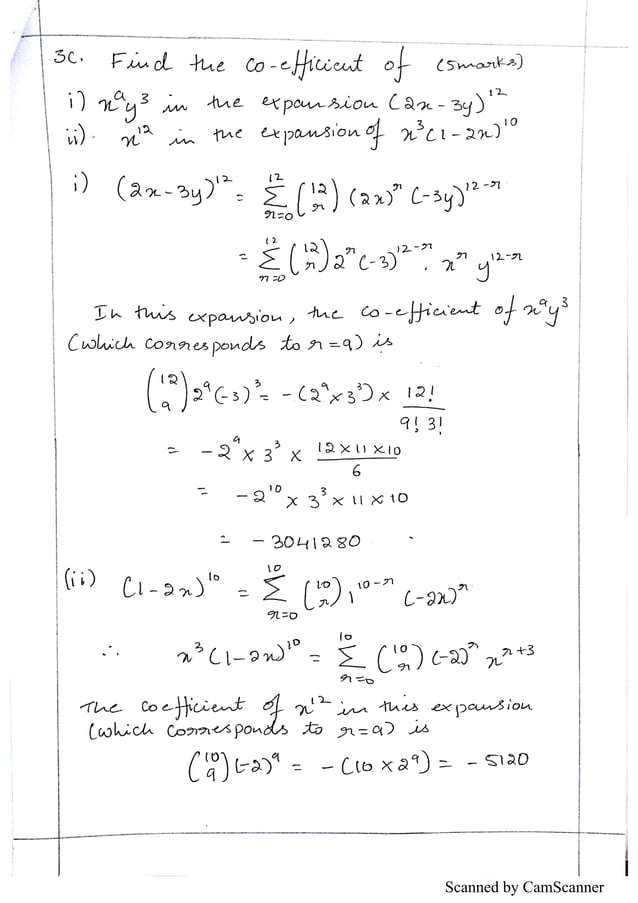 3c. Find the co-efficient of (5marks)
i) x⁹y³ in the expansion (2x - 3y)¹²
ii). x¹² in the expansion of x³(1 - 2x)¹⁰
i) (2x - 3y)¹² = ∑_{r=0}^{12} (12 r) (2x)^r (-3y)^{12-r}
= ∑_{r=0}^{12} (12 r) 2^r (-3)^{12-r} . x^r y^{12-r}
In this expansion, the co-efficient of x⁹y³
(which corresponds to r=9) is
(12 9) 2⁹(-3)³ = -(2⁹×3³) × 12!/9! 3!
= -2⁹ × 3³ × 12×11×10/6
= -2¹⁰ × 3³ × 11 × 10
= - 3041280
(ii) (1-2x)¹⁰ = ∑_{r=0}^{10} (10 r) 1^{10-r} (-2x)^r
∴ x³(1-2x)¹⁰ = ∑_{r=0}^{10} (10 r) (-2)^r x^{r+3}
The coefficient of x¹² in this expansion
(which corresponds to r=9) is
(10 9) (-2)⁹ = -(10 × 2⁹) = - 5120
Scanned by CamScanner